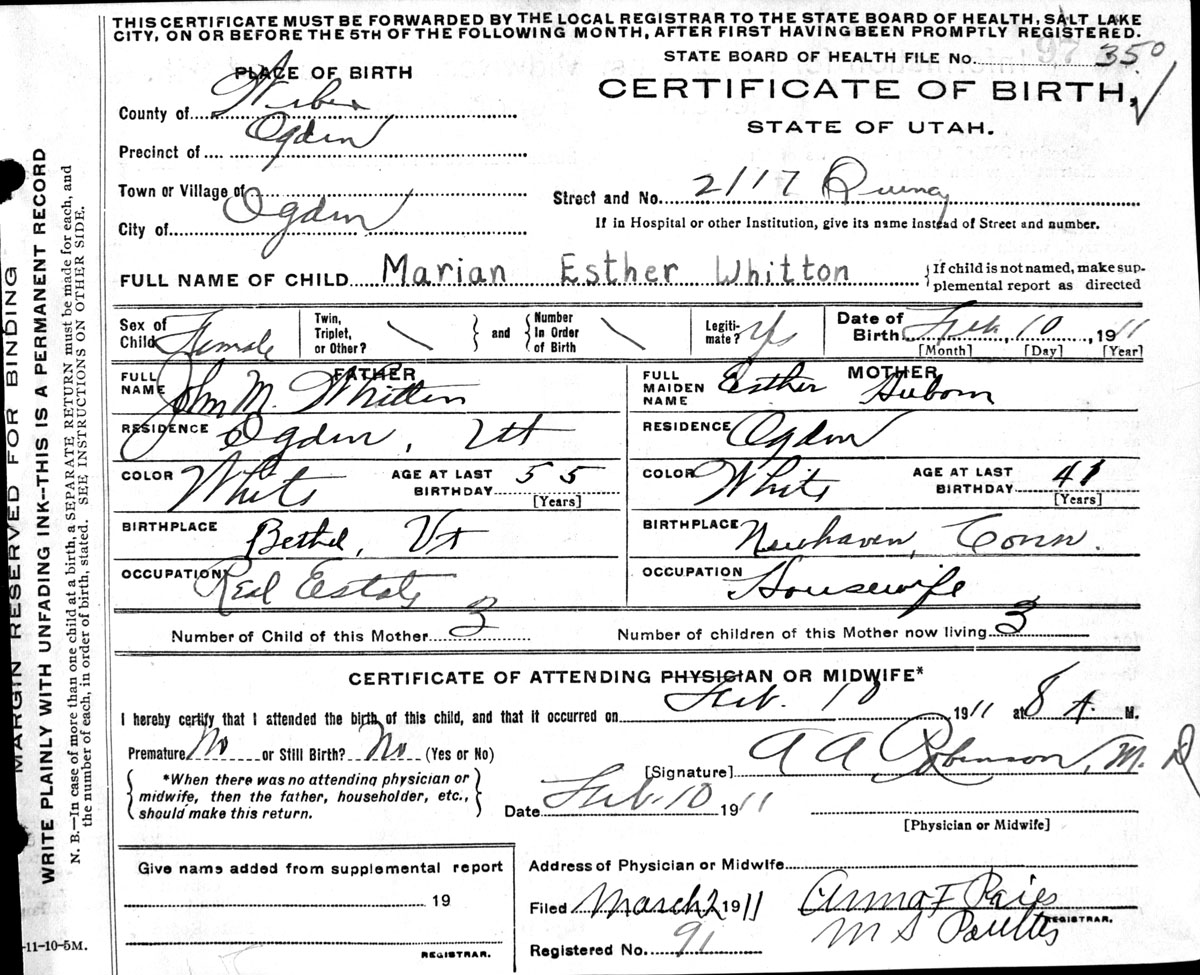 THIS CERTIFICATE MUST BE FORWARDED BY THE LOCAL REGISTRAR TO THE STATE BOARD OF HEALTH, SALT LAKE
CITY, ON OR BEFORE THE 5TH OF THE FOLLOWING MONTH, AFTER FIRST HAVING BEEN PROMPTLY REGISTERED.
STATE BOARD OF HEALTH FILE No. 350
PLACE OF BIRTH
CERTIFICATE OF BIRTH,
STATE OF UTAH.
County of Weber
Precinct of Ogden
Town or Village of
Street and No. 2117 Quincy
City of Ogden
If in Hospital or other Institution, give its name instead of Street and number.
FULL NAME OF CHILD Marian Esther Whitton
{If child is not named, make sup-
plemental report as directed
Sex of Child Female
Twin, Triplet, or Other? \
and
Number In Order of Birth \
Legiti-mate? Yes
Date of Birth Feb. 10, 1911
[Month] [Day] [Year]
FATHER
FULL NAME John M. Whitton
MOTHER
FULL MAIDEN NAME Esther
RESIDENCE Ogden, Ut
RESIDENCE Ogden
COLOR White
AGE AT LAST BIRTHDAY 55
[Years]
COLOR White
AGE AT LAST BIRTHDAY 41
[Years]
BIRTHPLACE Bethel, Vt
BIRTHPLACE Newhaven, Conn.
OCCUPATION Real Estate
OCCUPATION Housewife
Number of Child of this Mother 3
Number of children of this Mother now living 3
CERTIFICATE OF ATTENDING PHYSICIAN OR MIDWIFE*
I hereby certify that I attended the birth of this child, and that it occurred on Feb. 10 1911 at 8 A. M.
Premature No or Still Birth? No (Yes or No)
[Signature] A A Robinson, M. D
*When there was no attending physician or
midwife, then the father, householder, etc.,
should make this return.
Date Feb. 10 1911
[Physician or Midwife]
Give name added from supplemental report
19
REGISTRAR.
Address of Physician or Midwife
Filed March 2 1911
REGISTRAR.
Registered No. 91
-11-10-5M.
MARGIN RESERVED FOR BINDING
WRITE PLAINLY WITH UNFADING INK--THIS IS A PERMANENT RECORD
N. B.—In case of more than one child at a birth, a SEPARATE RETURN must be made for each, and
the number of each, in order of birth, stated. SEE INSTRUCTIONS ON OTHER SIDE.